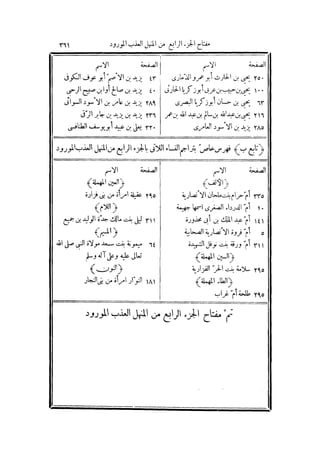 مفتاح الجزء الرابع من المنهل العذب المورود ٣٦١
الصفحة الاسم
٢٥٠ يحيى بن الحارث أبو عمرو الذمارى
١٠٠ يحيى بن حبيب بن عربى أبو زكريا الحارثى
٦٣ يحيى بن حسان أبو زكريا البصرى
٢١٦ يحيى بن عبدالله بن سالم بن عبد الله بن عمر
٢٨٥ يزيد بن الأسود العامرى
الصفحة الاسم
٤٣ يزيد بن الأصم أبو عوف الكوفى
٤٠ يزيد بن صالح أو ابن صبيح الرحبى
٢٨٩ يزيد بن عامر بن الأسود السوائى
٢٣٦ يزيد بن يزيد بن جابر الرقى
٣٢٠ يعلى بن عبيد أبو يوسف الطنافسى
﴿تابع ب﴾ فهرس خاص بتراجم النساء اللاتى بالجزء الرابع من المنهل العذب المورود
الصفحة الاسم
﴿الألف﴾
٣٣٥ أم حرام بنت ملحان الأنصارية
١٠ أم الدرداء الصغرى اسمها جهيمة
١٤١ أم عبد الملك بن أبى محذورة
٥ أم فروة الأنصارية الصحابية
٣١١ أم ورقة بنت نوفل الشهيدة
﴿السين المهملة﴾
٢٩٥ سلامة بنت الحر الفزارية
﴿الطاء المهملة﴾
٢٩٥ طلحة أم غراب
الصفحة الاسم
﴿العين المهملة﴾
٢٩٥ عقيلة امرأة من بنى فزارة
﴿اللام﴾
٣١١ ليلى بنت مالك جدة الوليد بن جميع
﴿الميم﴾
٦٤ ميمونة بنت سعد مولاة النبى صلى الله
تعالى عليه وعلى آله وسلم
﴿النون﴾
١٨١ النوار امرأة من بنى النجار
تم مفتاح الجزء الرابع من المنهل العذب المورود